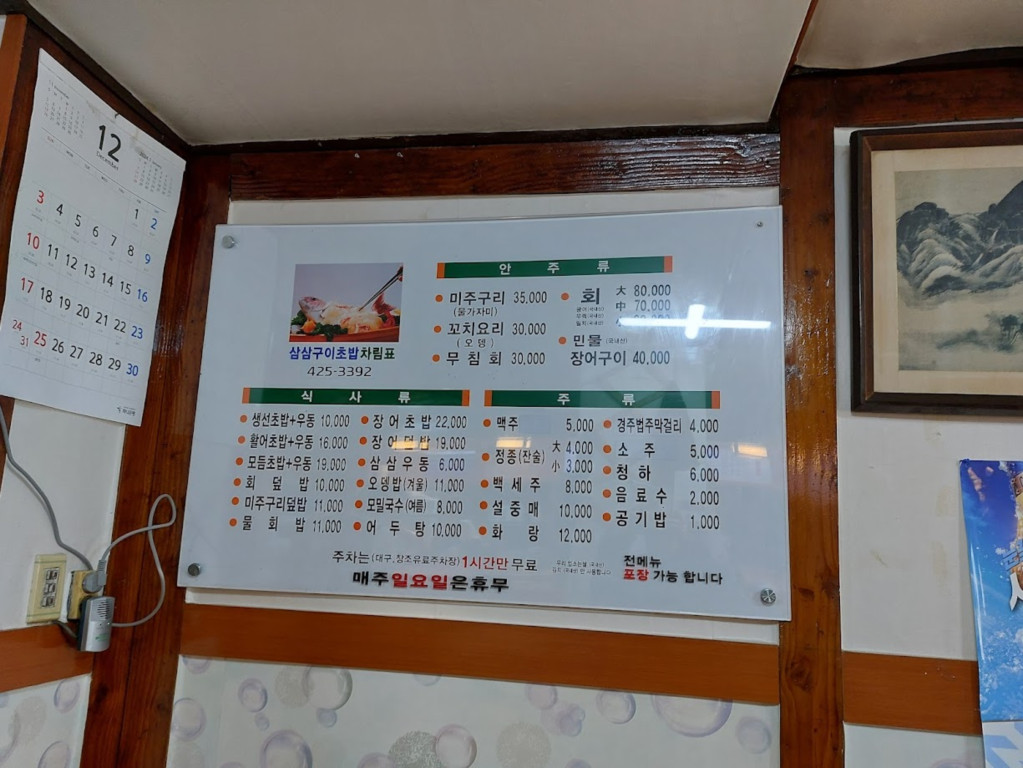 12
December
1 2
3 4 5 6 7 8 9
10 11 12 13 14 15 16
17 18 19 20 21 22 23
24 31 25 26 27 28 29 30
삼삼구이초밥차림표
425-3392
안 주 류
미주구리 35,000
(물가자미)
꼬치요리 30,000
(오 뎅)
무 침 회 30,000
회 大 80,000
中 70,000
민물 (국내산)
장어구이 40,000
식 사 류
생선초밥+우동 10,000
활어초밥+우동 16,000
모듬초밥+우동 19,000
회 덮 밥 10,000
미주구리덮밥 11,000
물 회 밥 11,000
장 어 초 밥 22,000
장 어 덮 밥 19,000
삼 삼 우 동 6,000
오뎅밥(겨울) 11,000
모밀국수(여름) 8,000
어 두 탕 10,000
주 류
맥주 5,000
정종(잔술) 大 4,000
小 3,000
백 세 주 8,000
설 중 매 10,000
화 랑 12,000
경주법주막걸리 4,000
소 주 5,000
청 하 6,000
음 료 수 2,000
공 기 밥 1,000
주차는(대구,창조유료주차장) 1시간만 무료
매주일요일은휴무
전메뉴
포장 가능 합니다